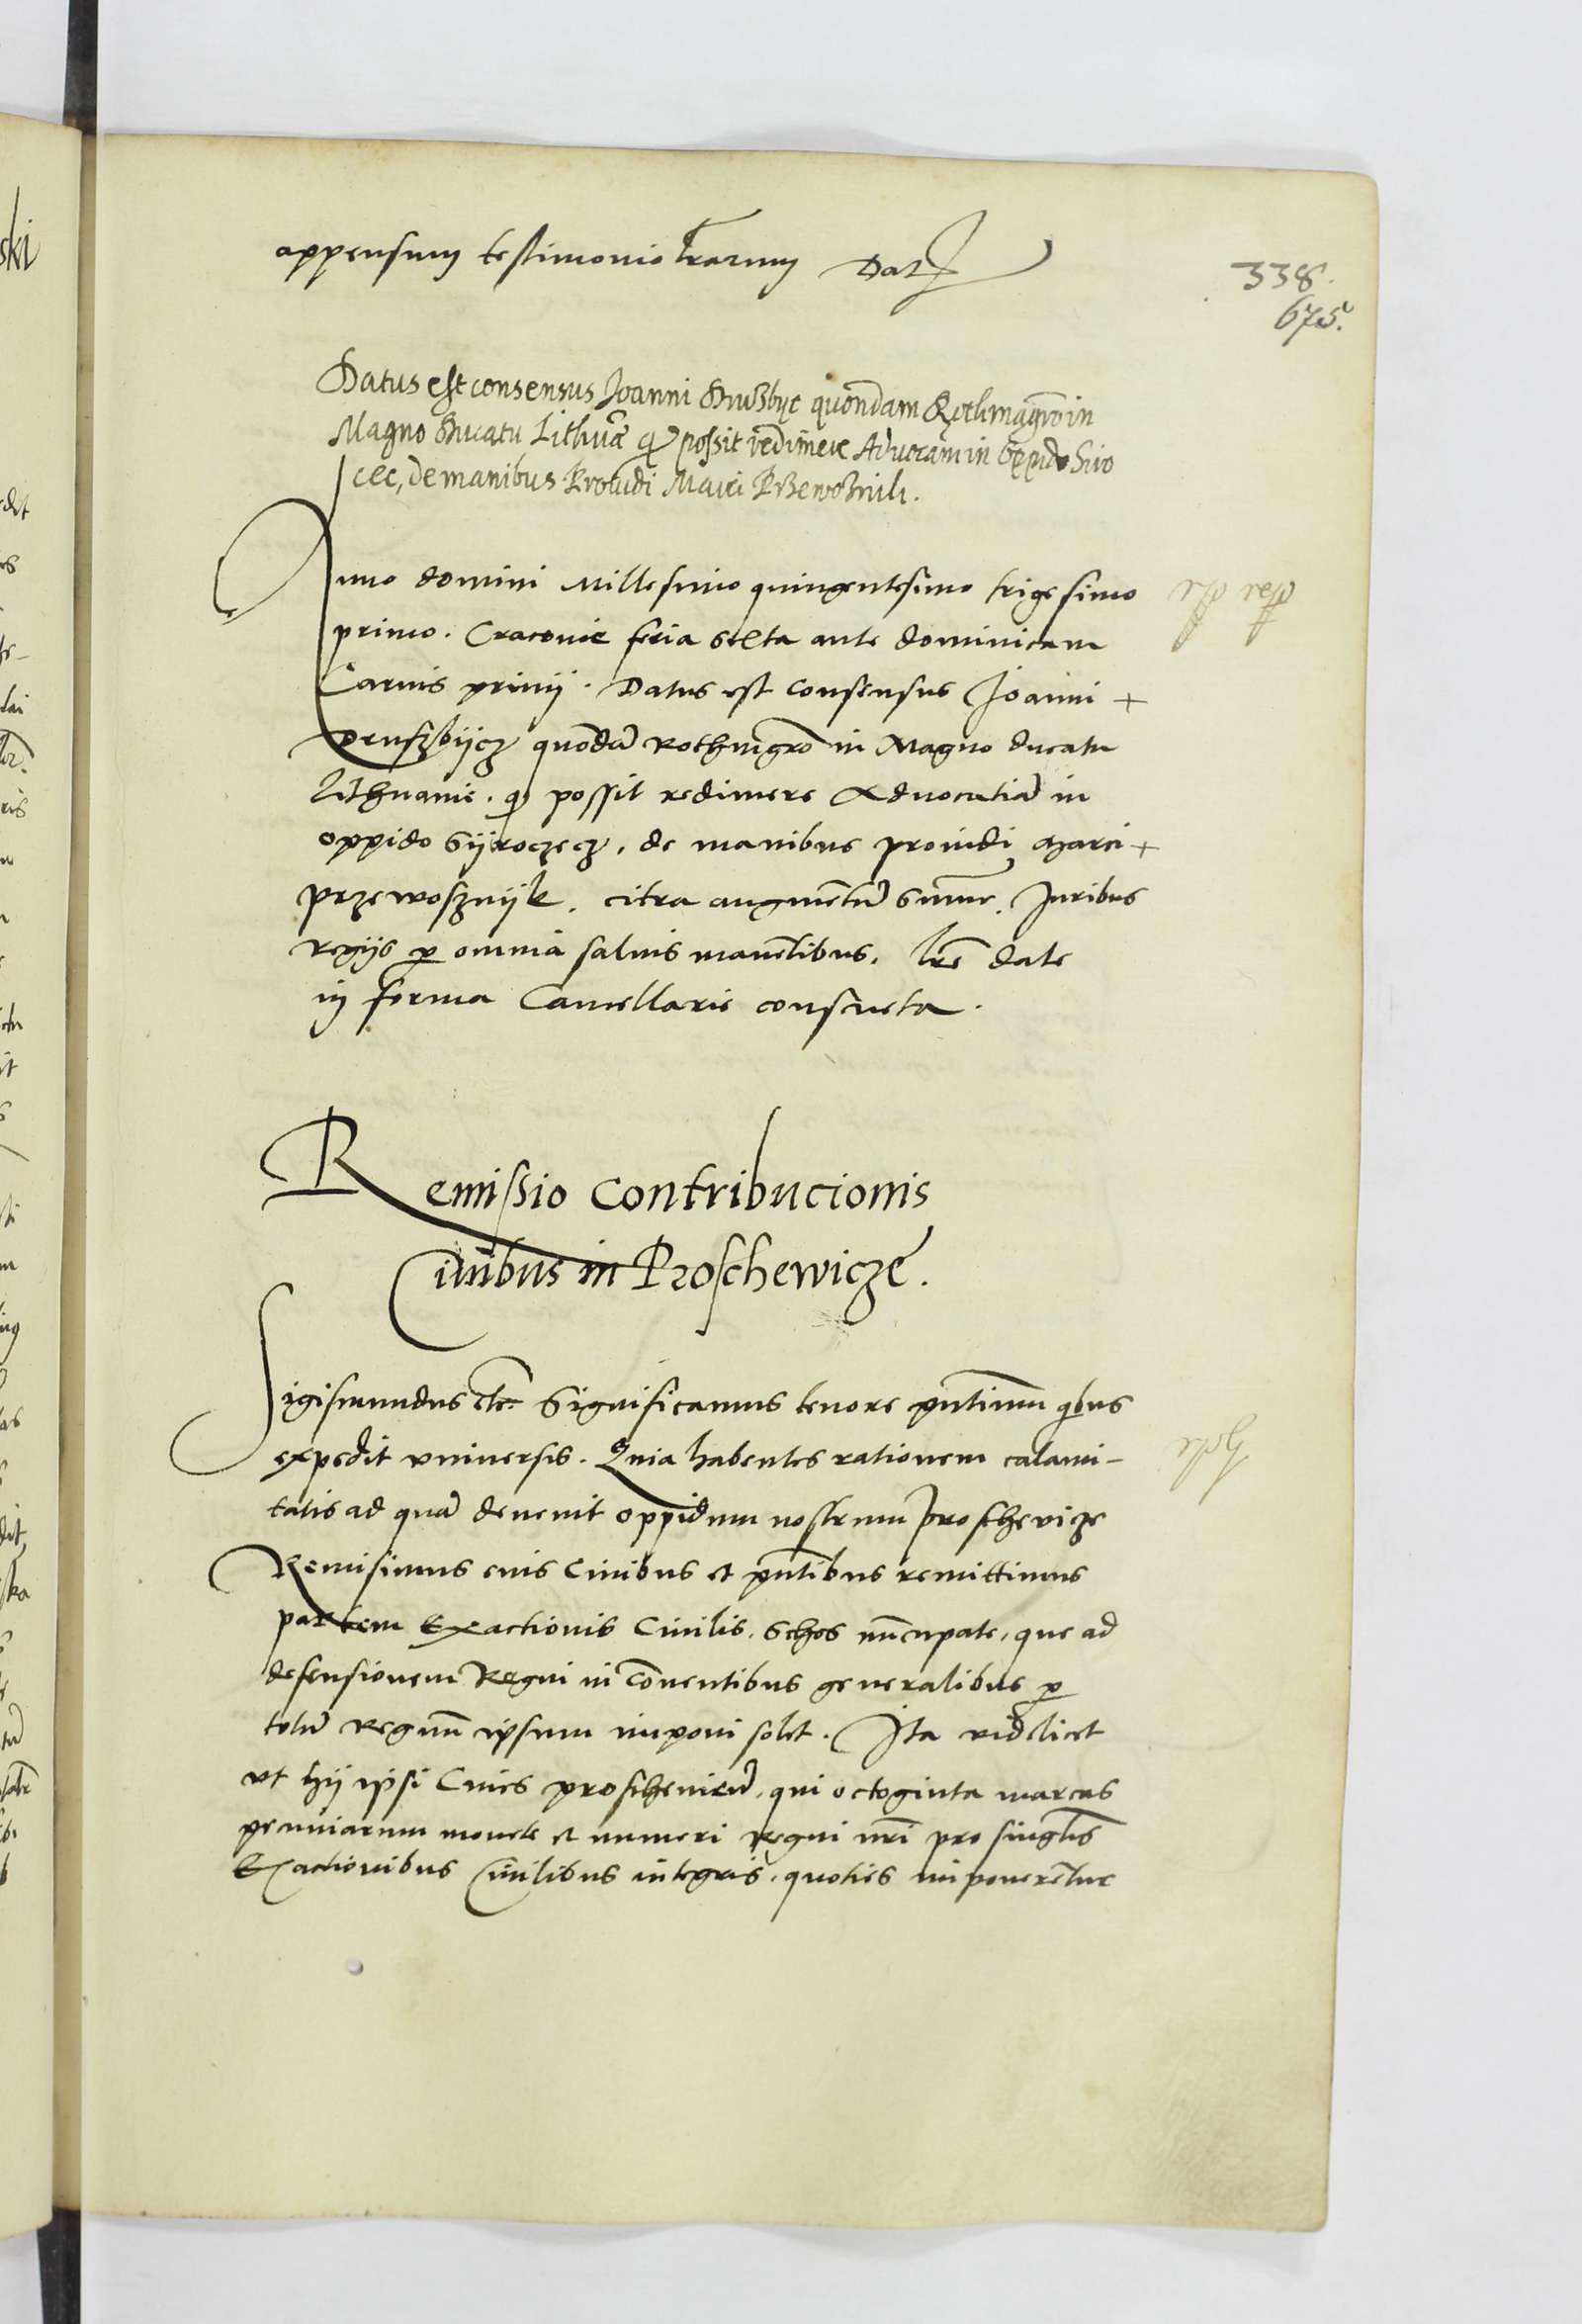 appensum testimonio lrarum Dat
338.
675.
Datus est consensus Joanni Drußbyc quondam Rothmagro in
Magno Ducatu Lithuae q possit redimere Aduocaam in oppido Siro
cec, de manibus Prouidi Marci Przewoznik.
Anno domini Millesimo quingentesimo trigesimo
primo. Cracouie feria sexta ante dominicam
Carnis priuij. Datus est consensus Joanni +
Druszbijcz quonda Rothmgro in Magno ducatu
Lithuanie. q possit redimere Aduocatia in
oppido Sijroczecz, de manibus prouidi Marci +
przewosznijk. citra augmentu summe, Juribus
regijs p omnia saluis manetibus. lre date
in forma Cancellarie consueta.
Remissio contribucionis
Ciuibus in Proschewicze.
Sigismundus etc. Significamus tenore pntium qbus
expedit vniuersis. Quia habentes rationem calami-
tatis ad qua deuenit oppidum nostrum Proschevicze
Remisimus eius Ciuibus et pntibus remittimus
partem Exactionis Ciuilis, Schos nucupate, que ad
defensionem Regni in couentibus generalibus p
totu regnu ipsum imponi solet. Ita videlicet
vt hij ipsi Ciues proscheuicen, qui octoginta marcas
pecuniarum monete et numeri regni nri pro singlis
Exactionibus Ciuilibus integris, quoties imponeretur